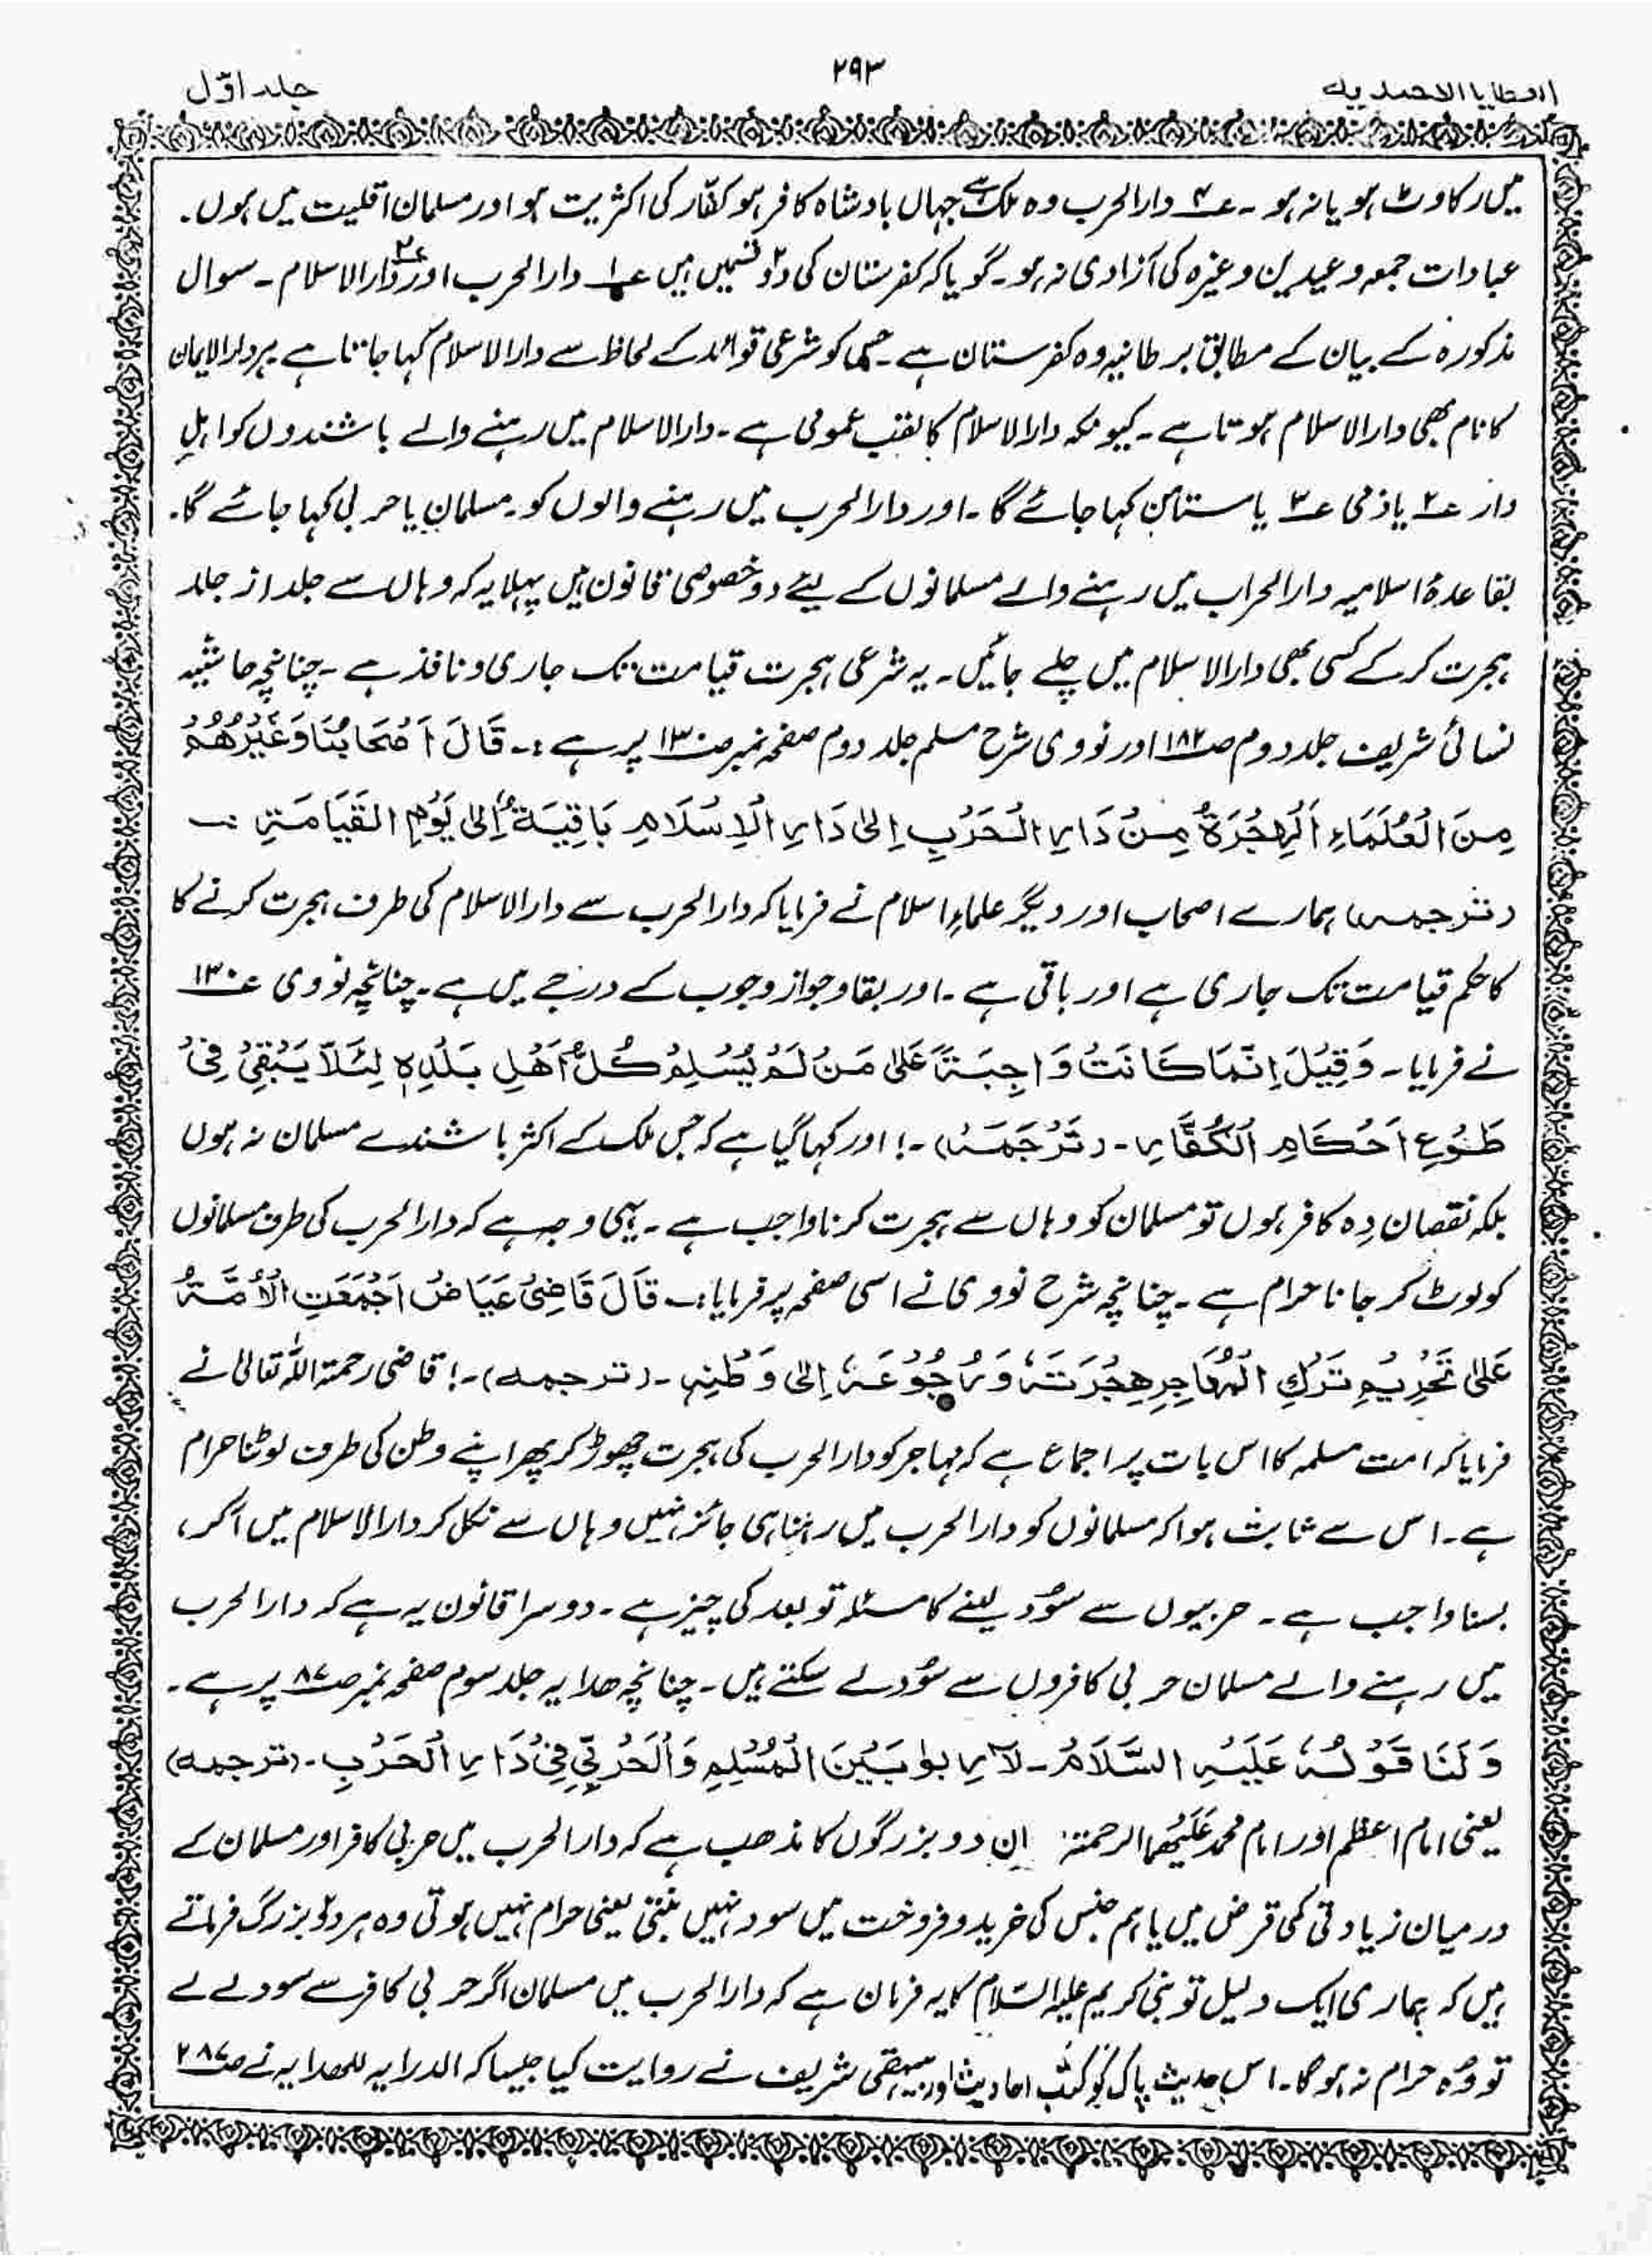 العطایا الاحمدیہ
۲۹۳
جلد اوّل
میں رکاوٹ ہو یا نہ ہو ۔ ۴؎ دارالحرب وہ ملک ہے جہاں بادشاہ کافر ہو کفّار کی اکثریت ہو اور مسلمان اقلیت میں ہوں۔
عبادات جمعہ و عیدین وغیرہ کی آزادی نہ ہو۔ گویا کہ کفرستان کی دو۲ قسمیں ہیں ۱؎ دارالحرب اور ۲؎ دارالاسلام ۔ سوال
مذکورہ کے بیان کے مطابق برطانیہ وہ کفرستان ہے ۔ جس کو شرعی قوائد کے لحاظ سے دارالاسلام کہا جاتا ہے ہر دارالایمان
کا نام بھی دارالاسلام ہوتا ہے ۔ کیونکہ دارالاسلام کا لقب عمومی ہے ۔ دارالاسلام میں رہنے والے باشندوں کو اہلِ
دار ۲؎ یا ذمی ۳؎ یا مستامن کہا جائے گا ۔ اور دارالحرب میں رہنے والوں کو ۔ مسلمان یا حربی کہا جائے گا۔
بقاعدۂ اسلامیہ دارالحراب میں رہنے والے مسلمانوں کے لیئے دو خصوصی قانون ہیں پہلا یہ کہ وہاں سے جلد از جلد
ہجرت کر کے کسی بھی دارالاسلام میں چلے جائیں ۔ یہ شرعی ہجرت قیامت تک جاری و نافذ ہے ۔ چنانچہ حاشیہ
نسائی شریف جلد دوم صـ۱۸۲ اور نووی شرح مسلم جلد دوم صفحہ نمبر صـ۱۳۰ پر ہے :۔ قَالَ اَصْحَابُنَا وَغَیْرُھُمْ
مِنَ الْعُلَمَاءِ اَلْھِجْرَۃُ مِنْ دَارِ الْحَرْبِ اِلیٰ دَارِ الْاِسْلَامِ بَاقِیَۃٌ اِلیٰ یَوْمِ الْقَیَامَۃِ :۔
(ترجمہ) ہمارے اصحاب اور دیگر علماءِ اسلام نے فرمایا کہ دارالحرب سے دارالاسلام کی طرف ہجرت کرنے کا
کا حکم قیامت تک جاری ہے اور باقی ہے ۔ اور بقا و جواز وجوب کے درجے میں ہے ۔ چنانچہ نووی صـ۱۳۰
نے فرمایا ۔ وَقِیْلَ اِنَّمَا کَانَتْ وَاجِبَۃً عَلیٰ مَنْ لَمْ یُسْلِمْ کُلُّ اَھْلِ بَلْدِہٖ لِئَلَّا یَبْقِیْ فِیْ
طَوْعِ اَحْکَامِ الْکُفَّارِ ۔ (تَرْجَمَہْ) ۔! اور کہا گیا ہے کہ جس ملک کے اکثر باشندے مسلمان نہ ہوں
بلکہ نقصان دِہ کافر ہوں تو مسلمان کو وہاں سے ہجرت کرنا واجب ہے ۔ یہی وجہ ہے کہ دارالحرب کی طرف مسلمانوں
کو لوٹ کر جانا حرام ہے ۔ چنانچہ شرح نووی نے اسی صفحہ پر فرمایا :۔ قَالَ قَاضِیْ عَیَاضُ اَجْمَعَتِ الْاُمَّۃُ
عَلیٰ تَحْرِیْمِ تَرْكِ الْمُھَاجِرِ ھِجْرَتَہٗ وَرُجُوْعَہٗ اِلیٰ وَطْنِہٖ ۔ (ترجمہ) ۔! قاضی رحمۃ اللہ تعالیٰ نے
فرمایا کہ امت مسلمہ کا اس بات پر اجماع ہے کہ مہاجر کو دارالحرب کی ہجرت چھوڑ کر پھر اپنے وطن کی طرف لوٹنا حرام
ہے ۔ اس سے ثابت ہوا کہ مسلمانوں کو دارالحرب میں رہنا ہی جائز نہیں وہاں سے نکل کر دارالاسلام میں آکر ،
بسنا واجب ہے ۔ حربیوں سے سُود لینے کا مسئلہ تو بعد کی چیز ہے ۔ دوسرا قانون یہ ہے کہ دارالحرب
میں رہنے والے مسلمان حربی کافروں سے سُود لے سکتے ہیں ۔ چنانچہ ھدایہ جلد سوم صفحہ نمبر صـ۸۷ پر ہے ۔
وَلَنَا قَوْلُہٗ عَلَیْہِ السَّلَامُ ۔ لَا رِبٰوا بَیْنَ الْمُسْلِمِ وَالْحَرْبِیِّ فِیْ دَارِ الْحَرْبِ ۔ (ترجمہ)
یعنی امام اعظم اور امام محمد عَلَیْھِمَا الرحمۃ: ان دو بزرگوں کا مذھب ہے کہ دارالحرب میں حربی کافر اور مسلمان کے
درمیان زیادتی کمی قرض میں یا ہم جنس کی خرید و فروخت میں سود نہیں بنتی یعنی حرام نہیں ہوتی وہ ہر دو۲ بزرگ فرماتے
ہیں کہ ہماری ایک دلیل تو نبی کریم علیہ السّلام کا یہ فرمان ہے کہ دارالحرب میں مسلمان اگر حربی کافر سے سود لے لے
تو وُہ حرام نہ ہوگا ۔ اس حدیث پاک کو کتب احادیث اور بیہقی شریف نے روایت کیا جیسا کہ الدرایہ للھدایہ نے صـ۲۸۷